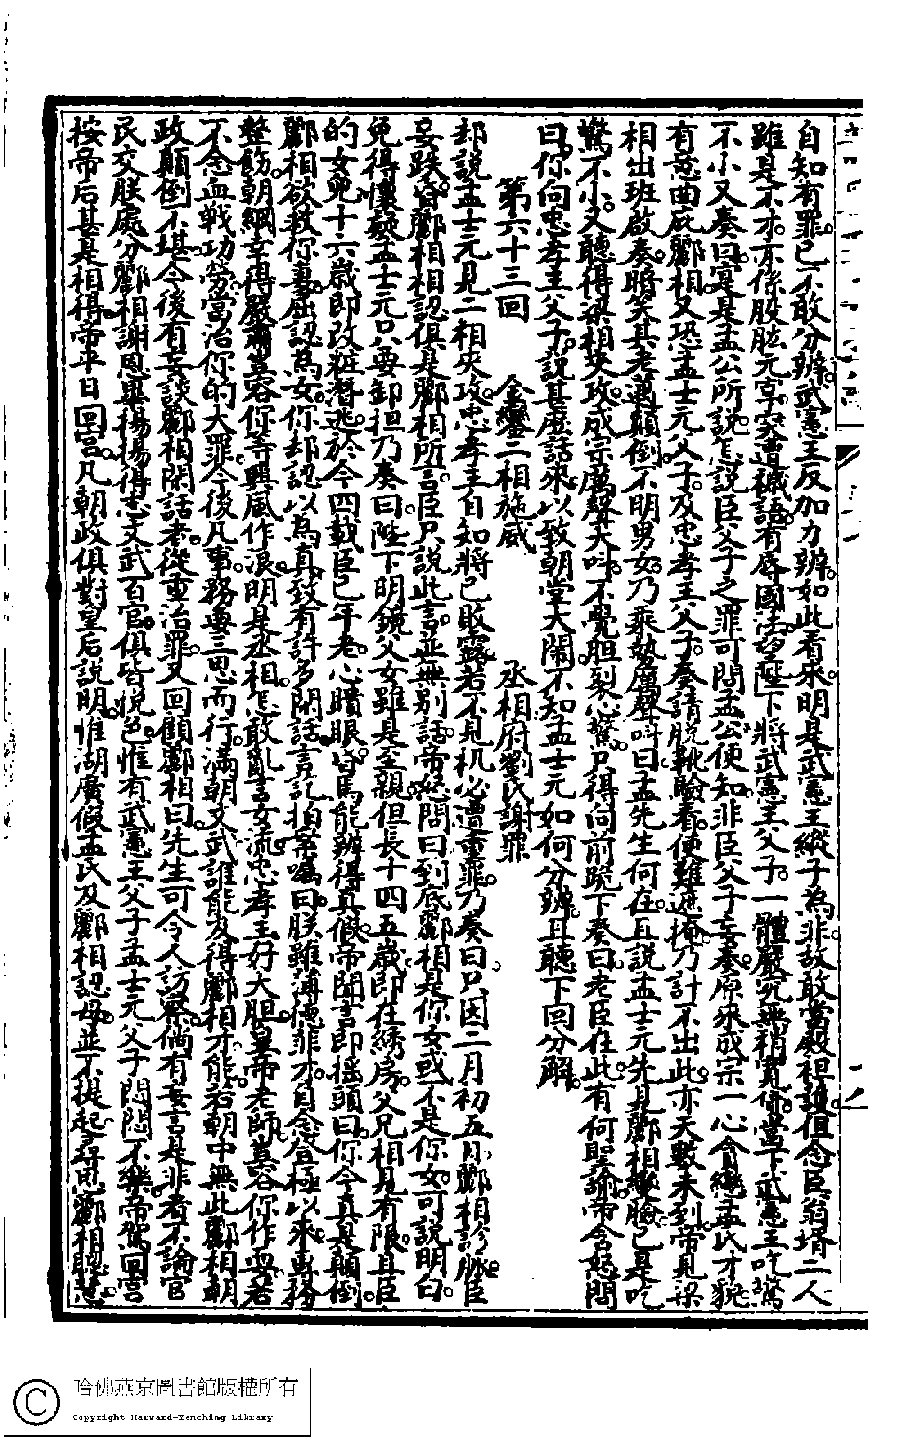 自知有罪已不敢分辨武憲王反加力辨如此看來明是武憲王縱子為非故敢當殿袒護但念臣翁壻二人
雖是不才亦係股肱元宰突遭穢語有辱國法望陛下將武憲王父子一體嚴究無稍寬係當下武憲王吃驚
不小又奏曰寔是孟公所說怎說臣父子之罪可問孟公便知非臣父子妄奏原來成宗一心貪戀孟氏才貌
有意曲庇酈相又恐孟士元父子及忠孝王父子奏請脫靴驗看便難遮掩乃計不出此亦天數未到帝見梁
相出班啟奏暗笑其老邁顛倒不明男女乃乘勢厲聲呌曰孟先生何在且說孟士元先見酈相變臉已是吃
驚不小又聽得梁相夾攻成宗厲聲大呌不覺胆裂心驚只得向前跪下奏曰老臣在此有何聖諭帝含怒問
曰你向忠孝王父子說甚麼話來以致朝堂大鬧不知孟士元如何分辨且聽下回分解
第六十三回 金鑾二相施威 丞相府劉氏謝罪
却說孟士元見二相夾攻忠孝王自知將已敗露若不見机必遭重罪乃奏曰只因二月初五日酈相診脉臣
妄跌昏酈相相認俱是酈相所言臣只說此言並無別話帝絕問曰到底酈相是你女或不是你女可說明白
免得懷疑孟士元只要卸担乃奏曰陛下明鏡父女雖是至親但長十四五歲即在綉房父兄相見有限且臣
的女兒十六歲即改粧潛逃於今四載臣已年老心瞶眼昏焉能辨得真假帝聞言即搖頭曰你今真是顛倒
酈相欲救你妻屈認為女你却認以為真致有許多閑話言訖拍案喝曰朕雖薄德非才自登極以來專務
整飭朝綱幸得嚴肅豈容你等興風作浪明是丞相怎敢亂言女流忠孝王好大胆皇帝老師豈容你作妻若
不念血戰功勞當治你的大罪今後凡事務要三思而行滿朝文武誰能及得酈相才能若朝中無此酈相朝
政顛倒不堪今後有妄談酈相閑話者從重治罪又回顧酈相曰先生可令人訪察倘有妄言是非者不論官
民交朕處分酈相謝恩畢揚揚得志文武百官俱皆悅色惟有武憲王父子孟士元父子悶悶不樂帝駕回宮
按帝后甚是相得帝平日回宮凡朝政俱對皇后說明惟湖廣假孟氏及酈相認母並不提起尋思酈相聰慧
哈佛燕京圖書館版權所有
Copyright Harvard-Yenching Library